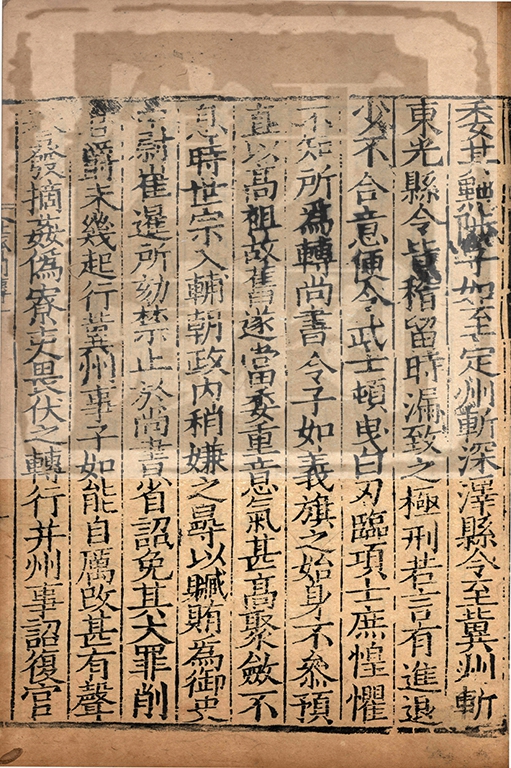 委其黜陟子如至定州斬深澤縣令至冀州斬
東光縣令皆稽留時漏致之極刑若言有進退
少不合意便令武士頓曳白刃臨項士庶惶懼
不知所為轉尚書令子如義旗之始身不參預
直以高祖故舊遂當委重意氣甚高聚斂不
息時世宗入輔朝政內稍嫌之尋以贓賄為御史
中尉崔暹所劾禁止於尚書省詔免其大罪削
官爵未幾起行冀州事子如能自厲改甚有聲
發摘姦偽寮吏畏伏之轉行并州事詔復官